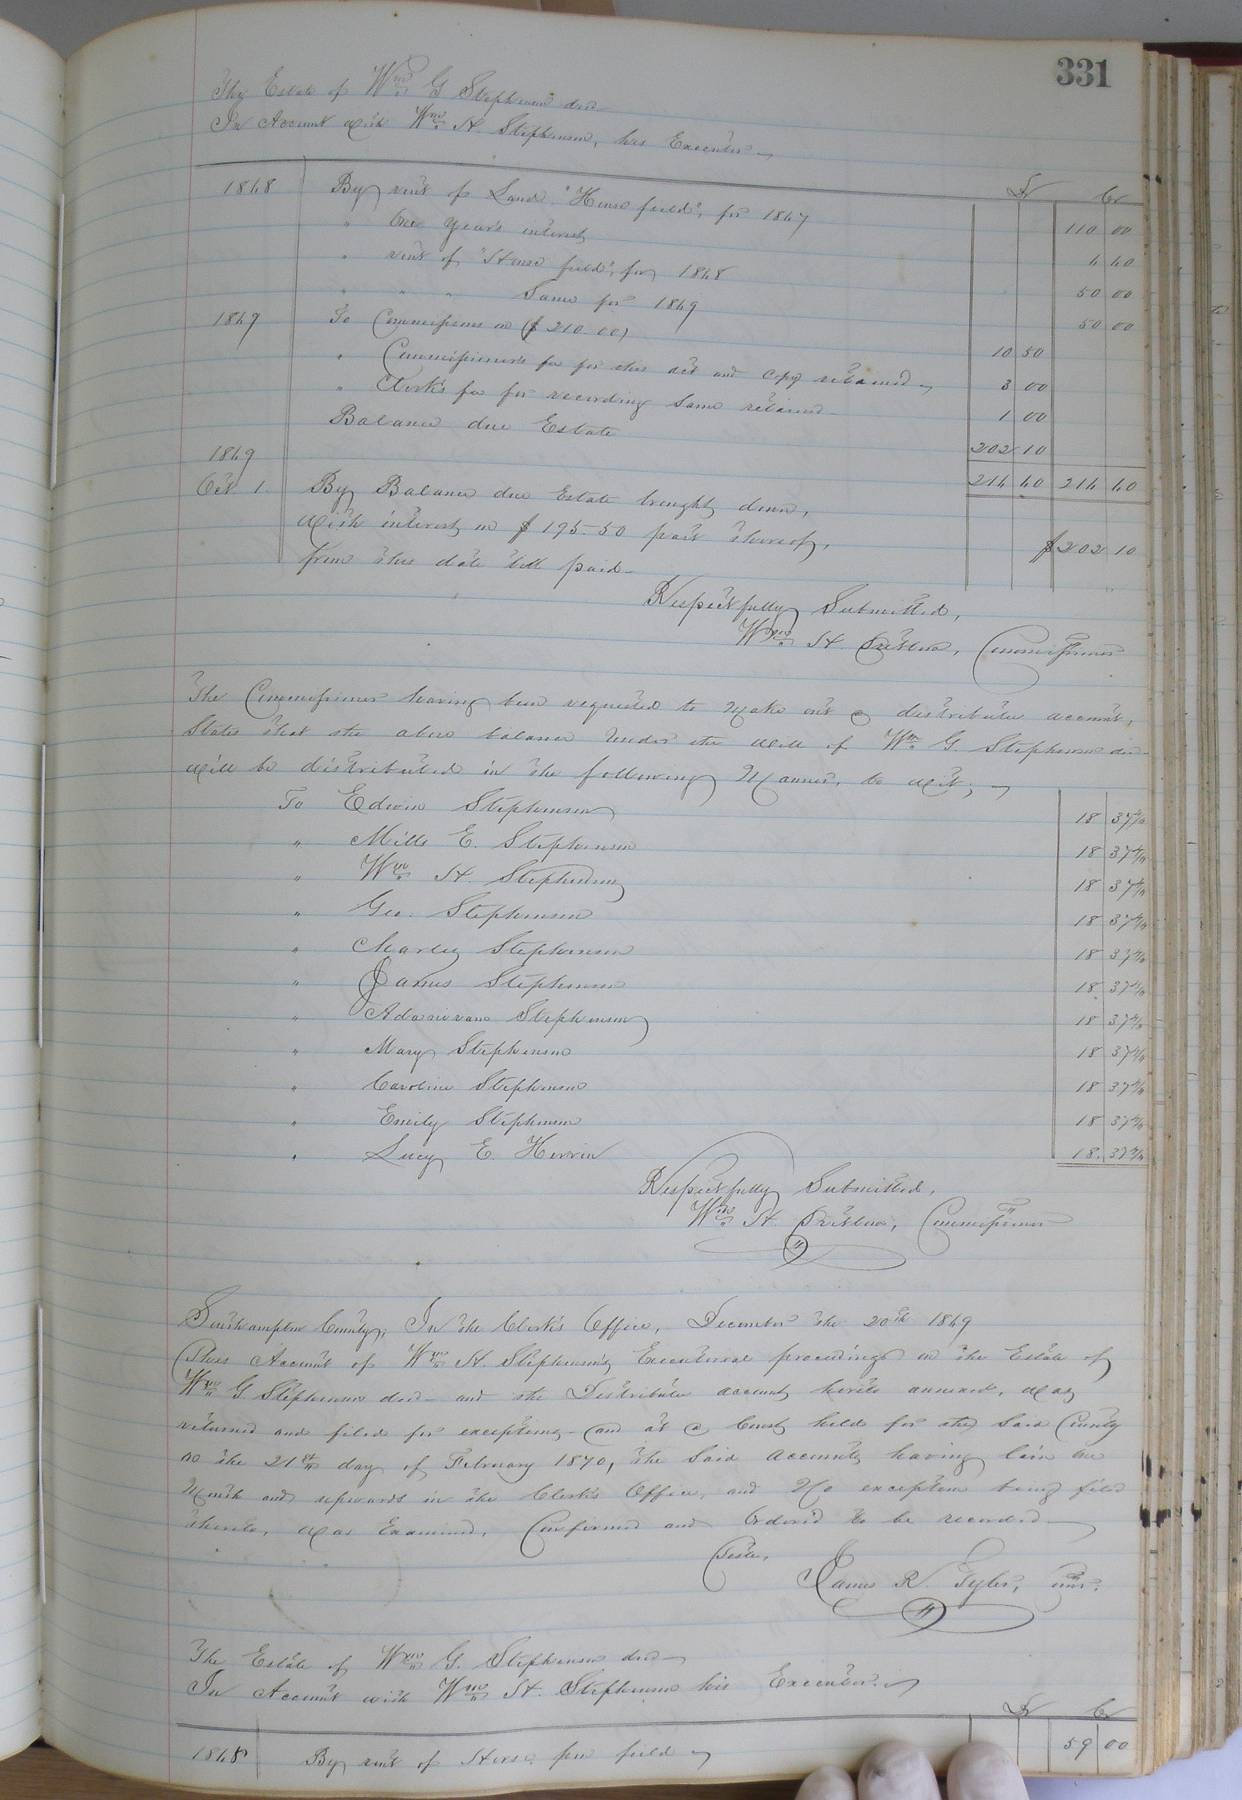 331
The Estate of Wm G Stephenson decd
In Account with Wm H Stephenson, his Executor
Dr Cr
1868 By rent of Land "House field", for 1867 110 00
" One years interest 6 60
" rent of "House field", for 1868 50 00
" " " Same for 1869 50 00
1869 To Commissions on ($210.00) 10 50
" Commissioner's fee for this act and copy retained 3 00
" Clerk's fee for recording same retained 1 00
Balance due Estate 202 10
1869 216 60 216 60
Oct 1. By Balance due Estate brought down,
with interest on $195.50 part thereof, $202 10
from this date till paid
Respectfully Submitted,
Wm H Commissioner
The Commissioner having been requested to make out a distributive account,
States that the above balance under the will of Wm G Stephenson decd
will be distributed in the following Manner, to wit;
To Edwin Stephenson 18 37
" Mills E. Stephenson 18 37
" Wm H Stephenson 18 37
" Geo. Stephenson 18 37
" Charley Stephenson 18 37
" James Stephenson 18 37
" Stephenson 18 37
" Mary Stephenson 18 37
" Caroline Stephenson 18 37
" Emily Stephenson 18 37
" Lucy E. 18. 37
Respectfully Submitted,
Wm H Commissioner
Southampton County, In the Clerk's Office, December the 20th 1869
This Account of Wm H Stephenson's Executorial proceedings on the Estate of
Wm G Stephenson decd and the Distributive account hereto annexed, was
returned and filed for exceptions and at a Court held for the said County
on the 21st day of February 1870, the said accounts having lain one
Month and upwards in the Clerk's Office, and No exception being filed
thereto, was Examined, Confirmed and Ordered to be recorded
Teste,
James R. Tyler,
The Estate of Wm G. Stephenson decd
In Account with Wm H. Stephenson his Executor
Dr Cr
1868 By rent of field 59 00